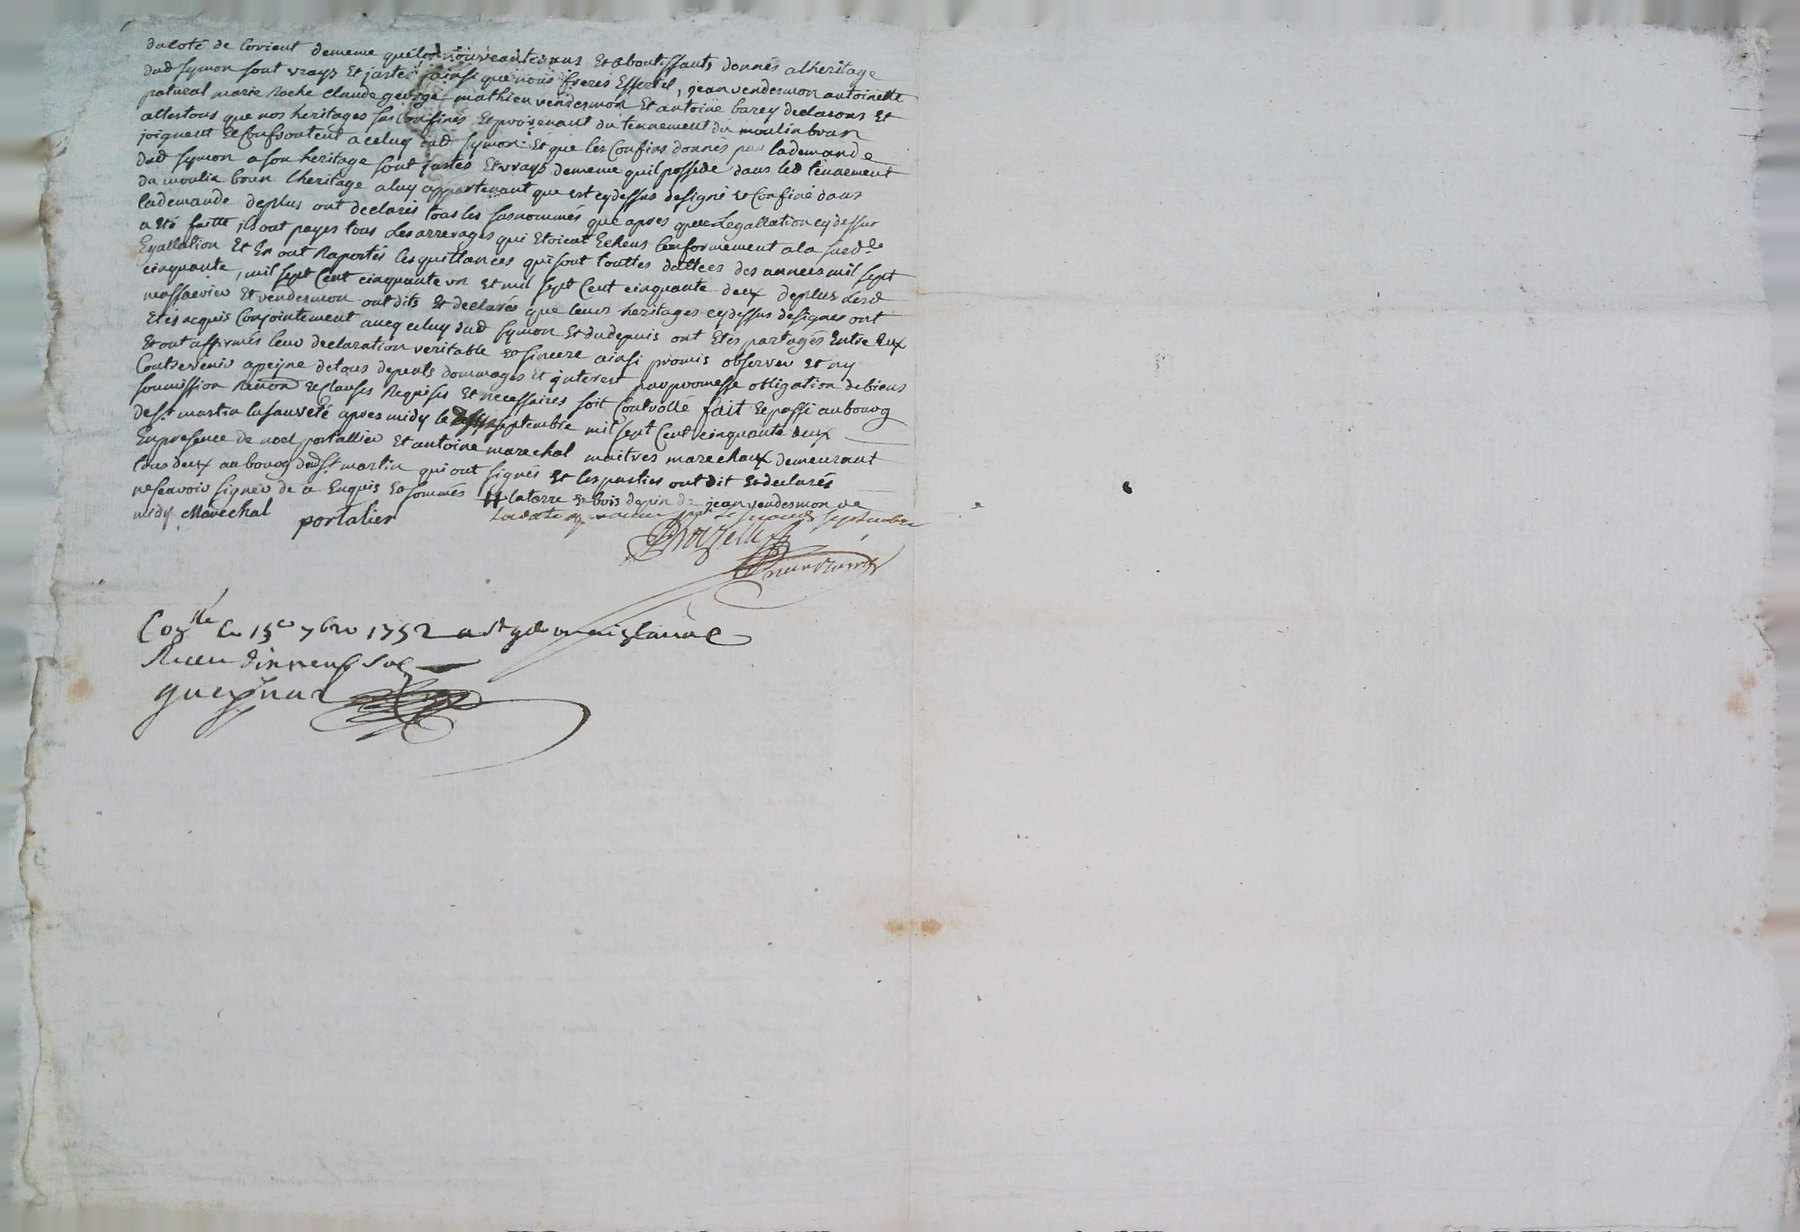 du coté de lorient de meme que les nouveaux tenans Et aboutissants donnés alheritage
dud symon sont vrays Et justes ainsi que nous freres Essertel, jean vendesmon antoinette
patural marie Roche claude george mathieu vendesmon Et antoine barey declarons Et
attestons que nos heritages sus Confinés Et provenant du tennement du moulin boun
joignent Et Confrontent a celuy dud symon Et que les Confins donnés par lademande
dud symon a son heritage sont justes Et vrays de meme quil possede dans led tennement
du moulin boun lheritage a luy appartenant que est cy dessus designé Et Confiné dans
lademande deplus ont declarés tous les susnommés que apres que Legallation cy dessus
a Eté faitte ils ont payes tous Les arrerages qui Etoient Echeus Conformement a la susd.
Egallation Et En ont Raportés les quittances qui sont touttes dattées des années mil sept
cinquante, mil sept Cent cinquante un Et mil sept Cent cinquante deux deplus Lesd
Et vendesmon ont dits Et declarés que leurs heritages cy dessus designes ont
Etés acquis Conjointement avec celuy dud symon Et du depuis ont Etés partagés Entre Eux
Et ont affirmés leur declaration veritable Et sincere ainsi promis observer Et ny
Contrevenir a peine de tous depents dommages Et interest par promesse obligation de biens
soumission Renon Et Clauses Requises Et necessaires soit Controllé fait Et passé au bourg
de st martin lasauveté apres midy le septembre mil sept Cent cinquante deux
En presence de noel portallier Et antoine marechal maitres marechaux demeurant
tous deux au bourg dud st martin qui ont signés Et les parties ont dit Et declarés
ne scavoir signer de ce Enquis Et sommés la terre Et bois de pin de jean vendesmon de
midy Marechal portalier septembre
Con.lle Le 15e 7bre 1752 a st germain laval
Receu dixneuf sol